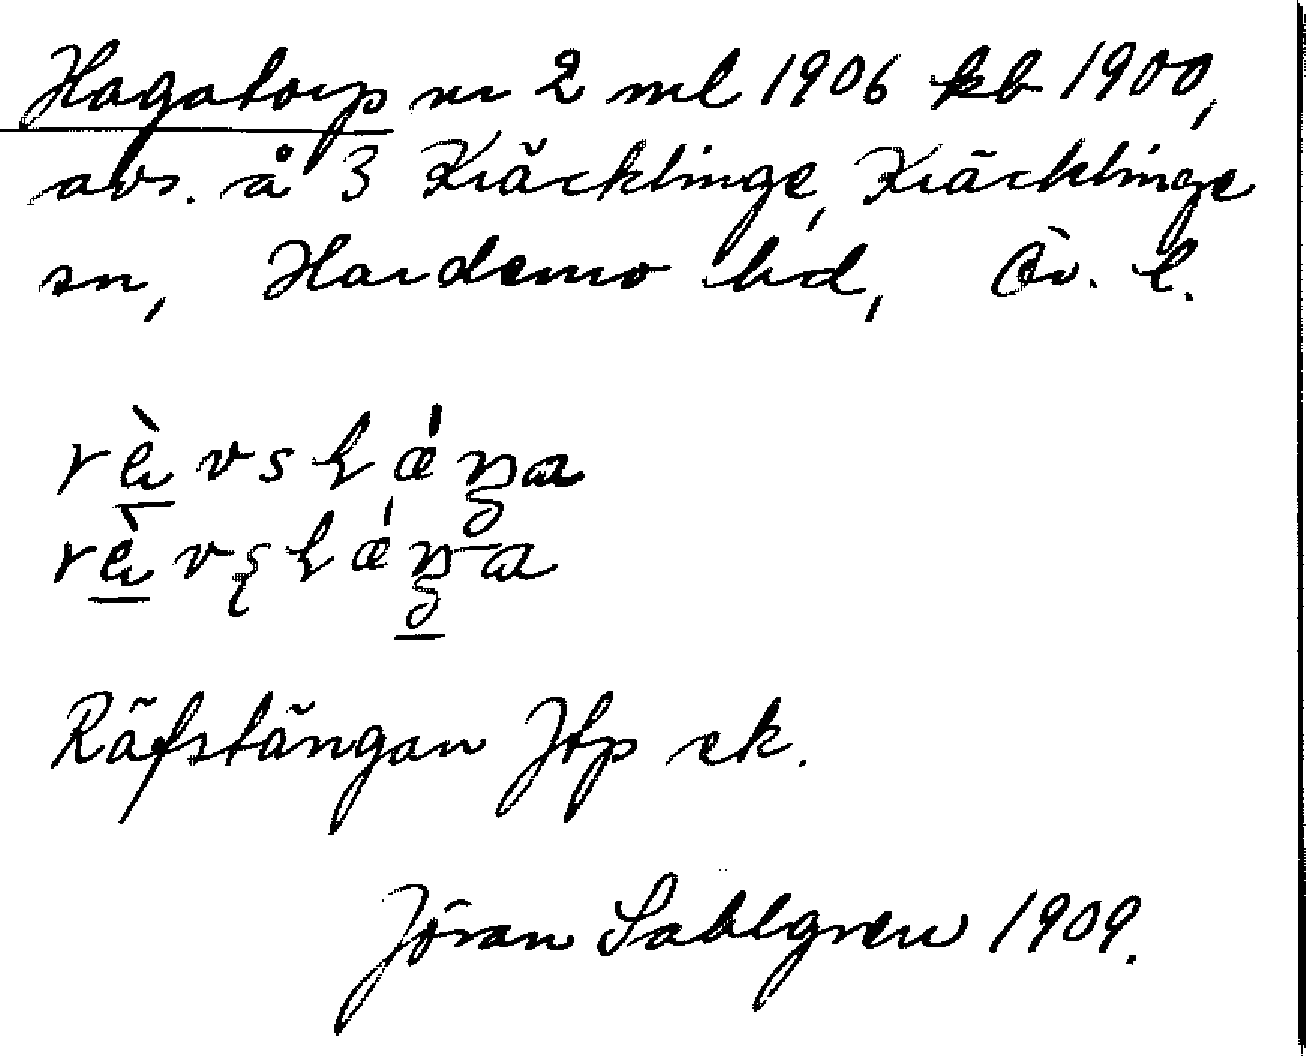 Hagatorp nr 2 ml 1906 kb 1900,
avs. å 3 Kräcklinge, Kräcklinge
sn, Hardemo hd, Ör. l.
Räfstängan Jtp ek.
Jöran Sahlgren 1909.